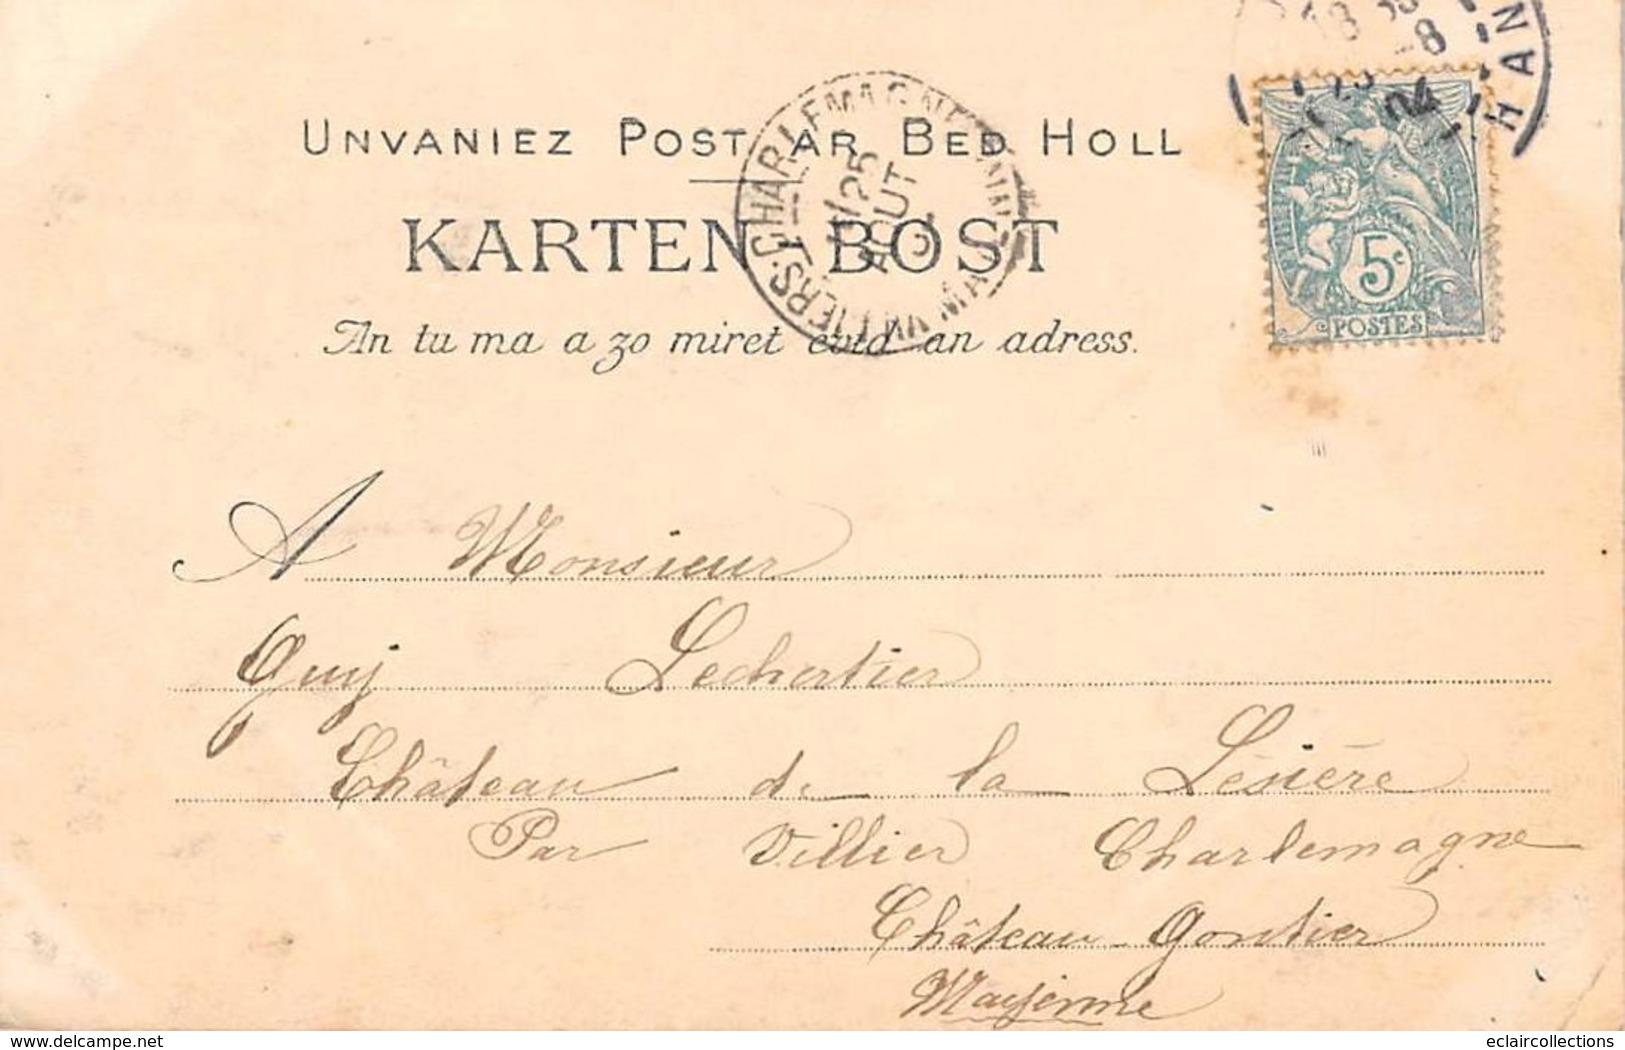 UNVANIEZ POST AR BED HOLL
KARTEN-BOST
An tu ma a zo miret evid an adress.
VILLIERS-CHARLEMAGNE
25
AOUT
04
5c
POSTES
A Monsieur
Guy Lechartier
Château de la
Par Villier Charlemagne
Château-Gontier
Mayenne
delcampe.net
eclaircollections